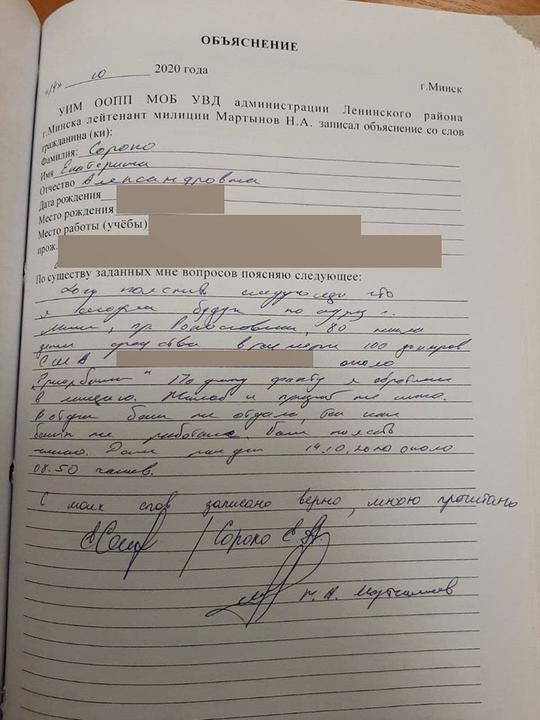 ОБЪЯСНЕНИЕ
"14" 10 2020 года
г.Минск
УИМ ООПП МОБ УВД администрации Ленинского района
г.Минска лейтенант милиции Мартынов Н.А. записал объяснение со слов
гражданина (ки):
Фамилия: Сороко
Имя Екатерина
Отчество Александровна
Дата рождения
Место рождения
Место работы (учёбы)
прож.
По существу заданных мне вопросов поясняю следующее:
Хочу пояснить следующее что
я сегодня будучи по адресу г.
Минск, пр. Рокоссовского, 80 нашла
ден. средства в размере 100 долларов
США около
"Приорбанк" По данному факту я обратилась
в милицию. Жалоб и претензий не имею.
В отдел банка не отдала, так как
банк не работал. Более пояснить
нечего. 14.10.2020 около
08.50 часов.
С моих слов записано верно, мною прочитано
Сороко Е.А.
Н.А. Мартынов